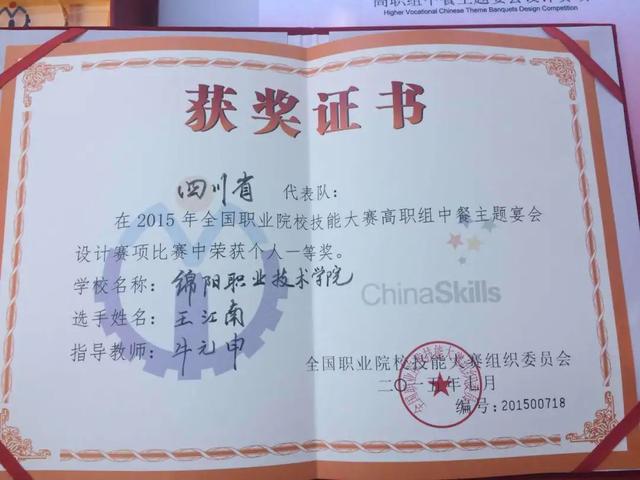 高职组中餐主题宴会设计赛项
Higher Vocational Chinese Theme Banquets Design Competition
获奖证书
四川省 代表队：
在2015年全国职业院校技能大赛高职组中餐主题宴会
设计赛项比赛中荣获个人一等奖。
学校名称：绵阳职业技术学院
ChinaSkills
选手姓名：王江南
指导教师：牛元申
全国职业院校技能大赛组织委员会
二〇一五年七月
编号：201500718